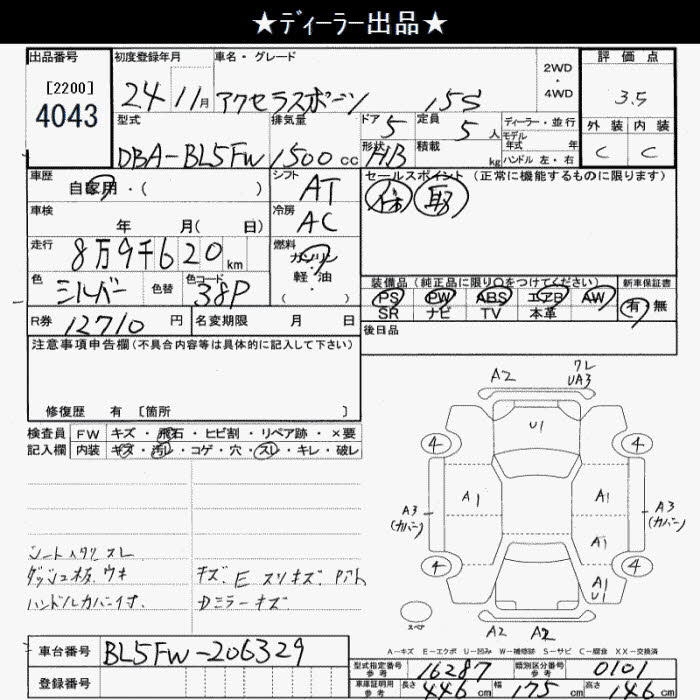 ★ディーラー出品★
出品番号 初度登録年月 車名・グレード 2WD・4WD 評価点
[2200]
4043
24 11月 アクセラスポーツ 15S 3.5
型式 排気量 ドア 定員 ディーラー・並行 外装 内装
DBA-BL5FW 1500cc 5 5人 モデル年式 年 C C
形状 HB 積載 kg ハンドル 左・右
車歴 自家用・( ) シフト AT セールスポイント (正常に機能するものに限ります)
保 取
車検 年 月( 日) 冷房 AC
走行 8万9千620km 燃料 ガソリン・軽・油・( )
色 シルバー 色替 色コード 38P
装備品 (純正品に限り○をつけてください) 新車保証書
PS PW ABS エアB AW 有・無
SR ナビ TV 本革
R券 12710円 名変期限 月 日 後日品
注意事項申告欄 (不具合内容等は具体的に記入して下さい)
修復歴 有 [箇所 ]
検査員 FW キズ・飛石・ヒビ割・リペア跡・×要
記入欄 内装 キズ・汚レ・コゲ・穴・スレ・キレ・破レ
A2 ワレ
UA3
U1
4 4
A1 A1
A3 (カバー) A3 (カバー)
A1
4 4
A1
U1
スペア A2 A2
シートスレ
ダッシュ板 ウキ キズ E スリキズ
ハンドルカバー付 Dミラーキズ
A-キズ E-エクボ U-凹み W-補修跡 S-サビ C-腐食 XX-交換済
車台番号 BL5FW-206329
型式指定番号 参考 16287 類別区分番号 参考 0101
登録番号
車庫証明用 参考 長さ 446cm 幅 175cm 高さ 146cm